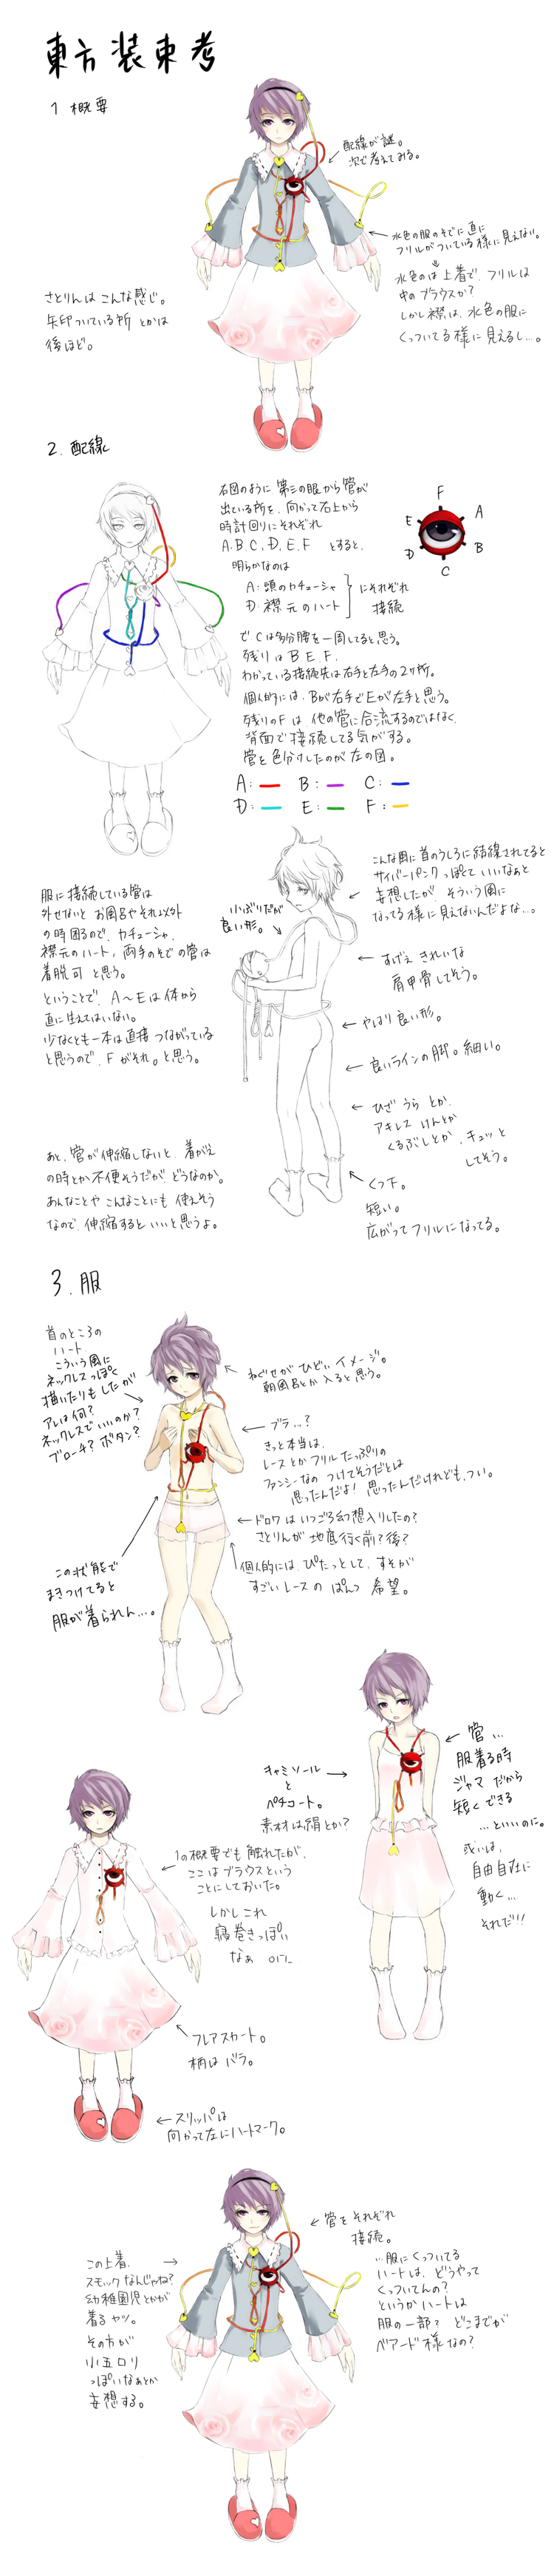 東方装束考
1 概要
配線が謎。
次で考えてみる。
水色の服のそでに直に
フリルがついている様に見えない。
⇓
水色のは上着で、フリルは
中のブラウスか?
しかし襟は、水色の服に
くっついてる様に見えるし…。
さとりんはこんな感じ。
矢印ついている所とかは
後ほど。
2. 配線
右図のように第三の眼から管が
出ている所を、向かって右上から
時計回りにそれぞれ
A.B.C.D.E.F とすると、
F
A
B
C
D
E
明らかなのは
A:頭のカチューシャ
D:襟元のハート
にそれぞれ
接続
でCは多分腰を一周してると思う。
残りは B.E.F.
わかっている接続先は右手と左手の2ヶ所。
個人的には、Bが右手でEが左手と思う。
残りのFは、他の管に合流するのではなく、
背面で接続してる気がする。
管を色分けしたのが左の図。
A: B: C:
D: E: F:
こんな風に首のうしろに結線されてると
サイバーパンクっぽくていいなぁと
妄想したが、そういう風に
なってる様に見えないんだよな…。
服に接続している管は
外せないとお風呂やそれ以外
の時困るので、カチューシャ、
襟元のハート、両手のそでの管は
着脱可と思う。
ということで、A〜Eは体から
直に生えてはいない。
少なくとも一本は直接つながっている
と思うので、Fがそれ。と思う。
小ぶりだが
良い形。
すげぇきれいな
肩甲骨してそう。
やはり良い形。
良いラインの脚。細い。
ひざうらとか、
アキレスけんとか
くるぶしとか、キュッと
してそう。
くつ下。
短い。
広がってフリルになってる。
あと、管が伸縮しないと、着がえ
の時とか不便そうだが、どうなのか。
あんなことやこんなことにも使えそう
なので、伸縮するといいと思うよ。
3. 服
首のところの
ハート。
こういう風に
ネックレスっぽく
描いたりもしたが
アレは何?
ネックレスでいいのか?
ブローチ?ボタン?
ねぐせがひどいイメージ。
朝風呂とか入ると思う。
ブラ…?
きっと本当は、
レースとかフリルたっぷりの
ファンシーなのつけてそうだとは
思ったんだよ!思ったんだけれども、つい。
ドロワはいつごろ幻想入りしたの?
さとりんが地底行く前?後?
個人的には、ぴたっとして、すそが
すごいレースのぱんつ希望。
この状態で
まきつけてると
服が着られん…。
キャミソール
と
ペチコート。
素材は絹とか?
管…
服着る時
ジャマだから
短くできる
…といいのに。
或いは、
自由自在に
動く…
それだ!!
1の概要でも触れたが、
ここはブラウスという
ことにしておいた。
しかしこれ
寝巻きっぽい
なぁ
フレアスカート。
柄はバラ。
スリッパは
向かって左にハートマーク。
管をそれぞれ
接続。
…服にくっついてる
ハートは、どうやって
くっついてんの?
というかハートは
服の一部?どこまでが
ベアード様なの?
この上着、
スモックなんじゃね?
幼稚園児とかが
着るヤツ。
その方が
小五ロリ
っぽいなぁとか
妄想する。